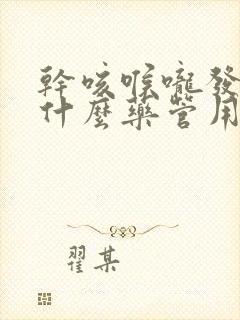 幹咳喉嚨發
什麼藥管用
翟某